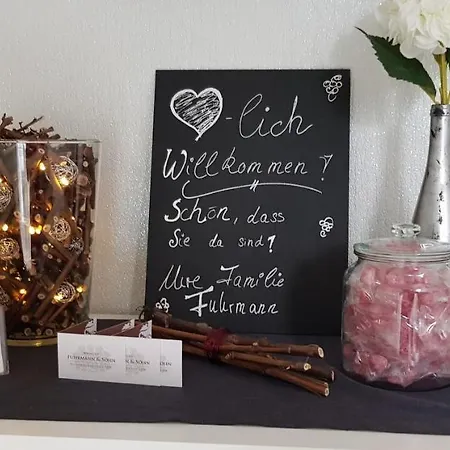 ♥-lich
Willkommen!
Schön, dass
Sie da sind!
Ihre Familie
Fuhrmann
Fuhrmann & Sohn